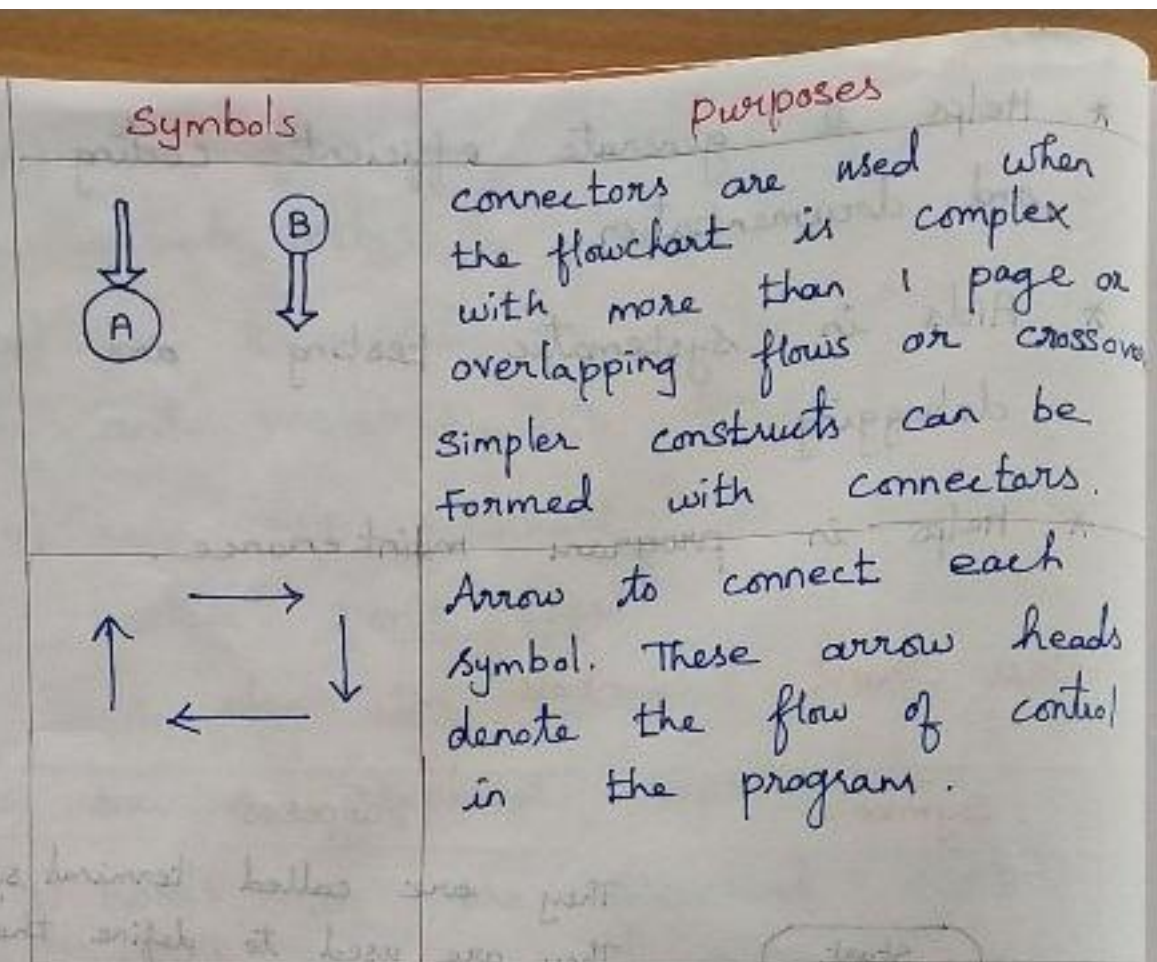 Symbols
Purposes
A
B
connectors are used when
the flowchart is complex
with more than 1 page or
overlapping flows or crossover
simpler constructs can be
formed with connectars.
Arrow to connect each
symbol. These arrow heads
denote the flow of control
in the program.